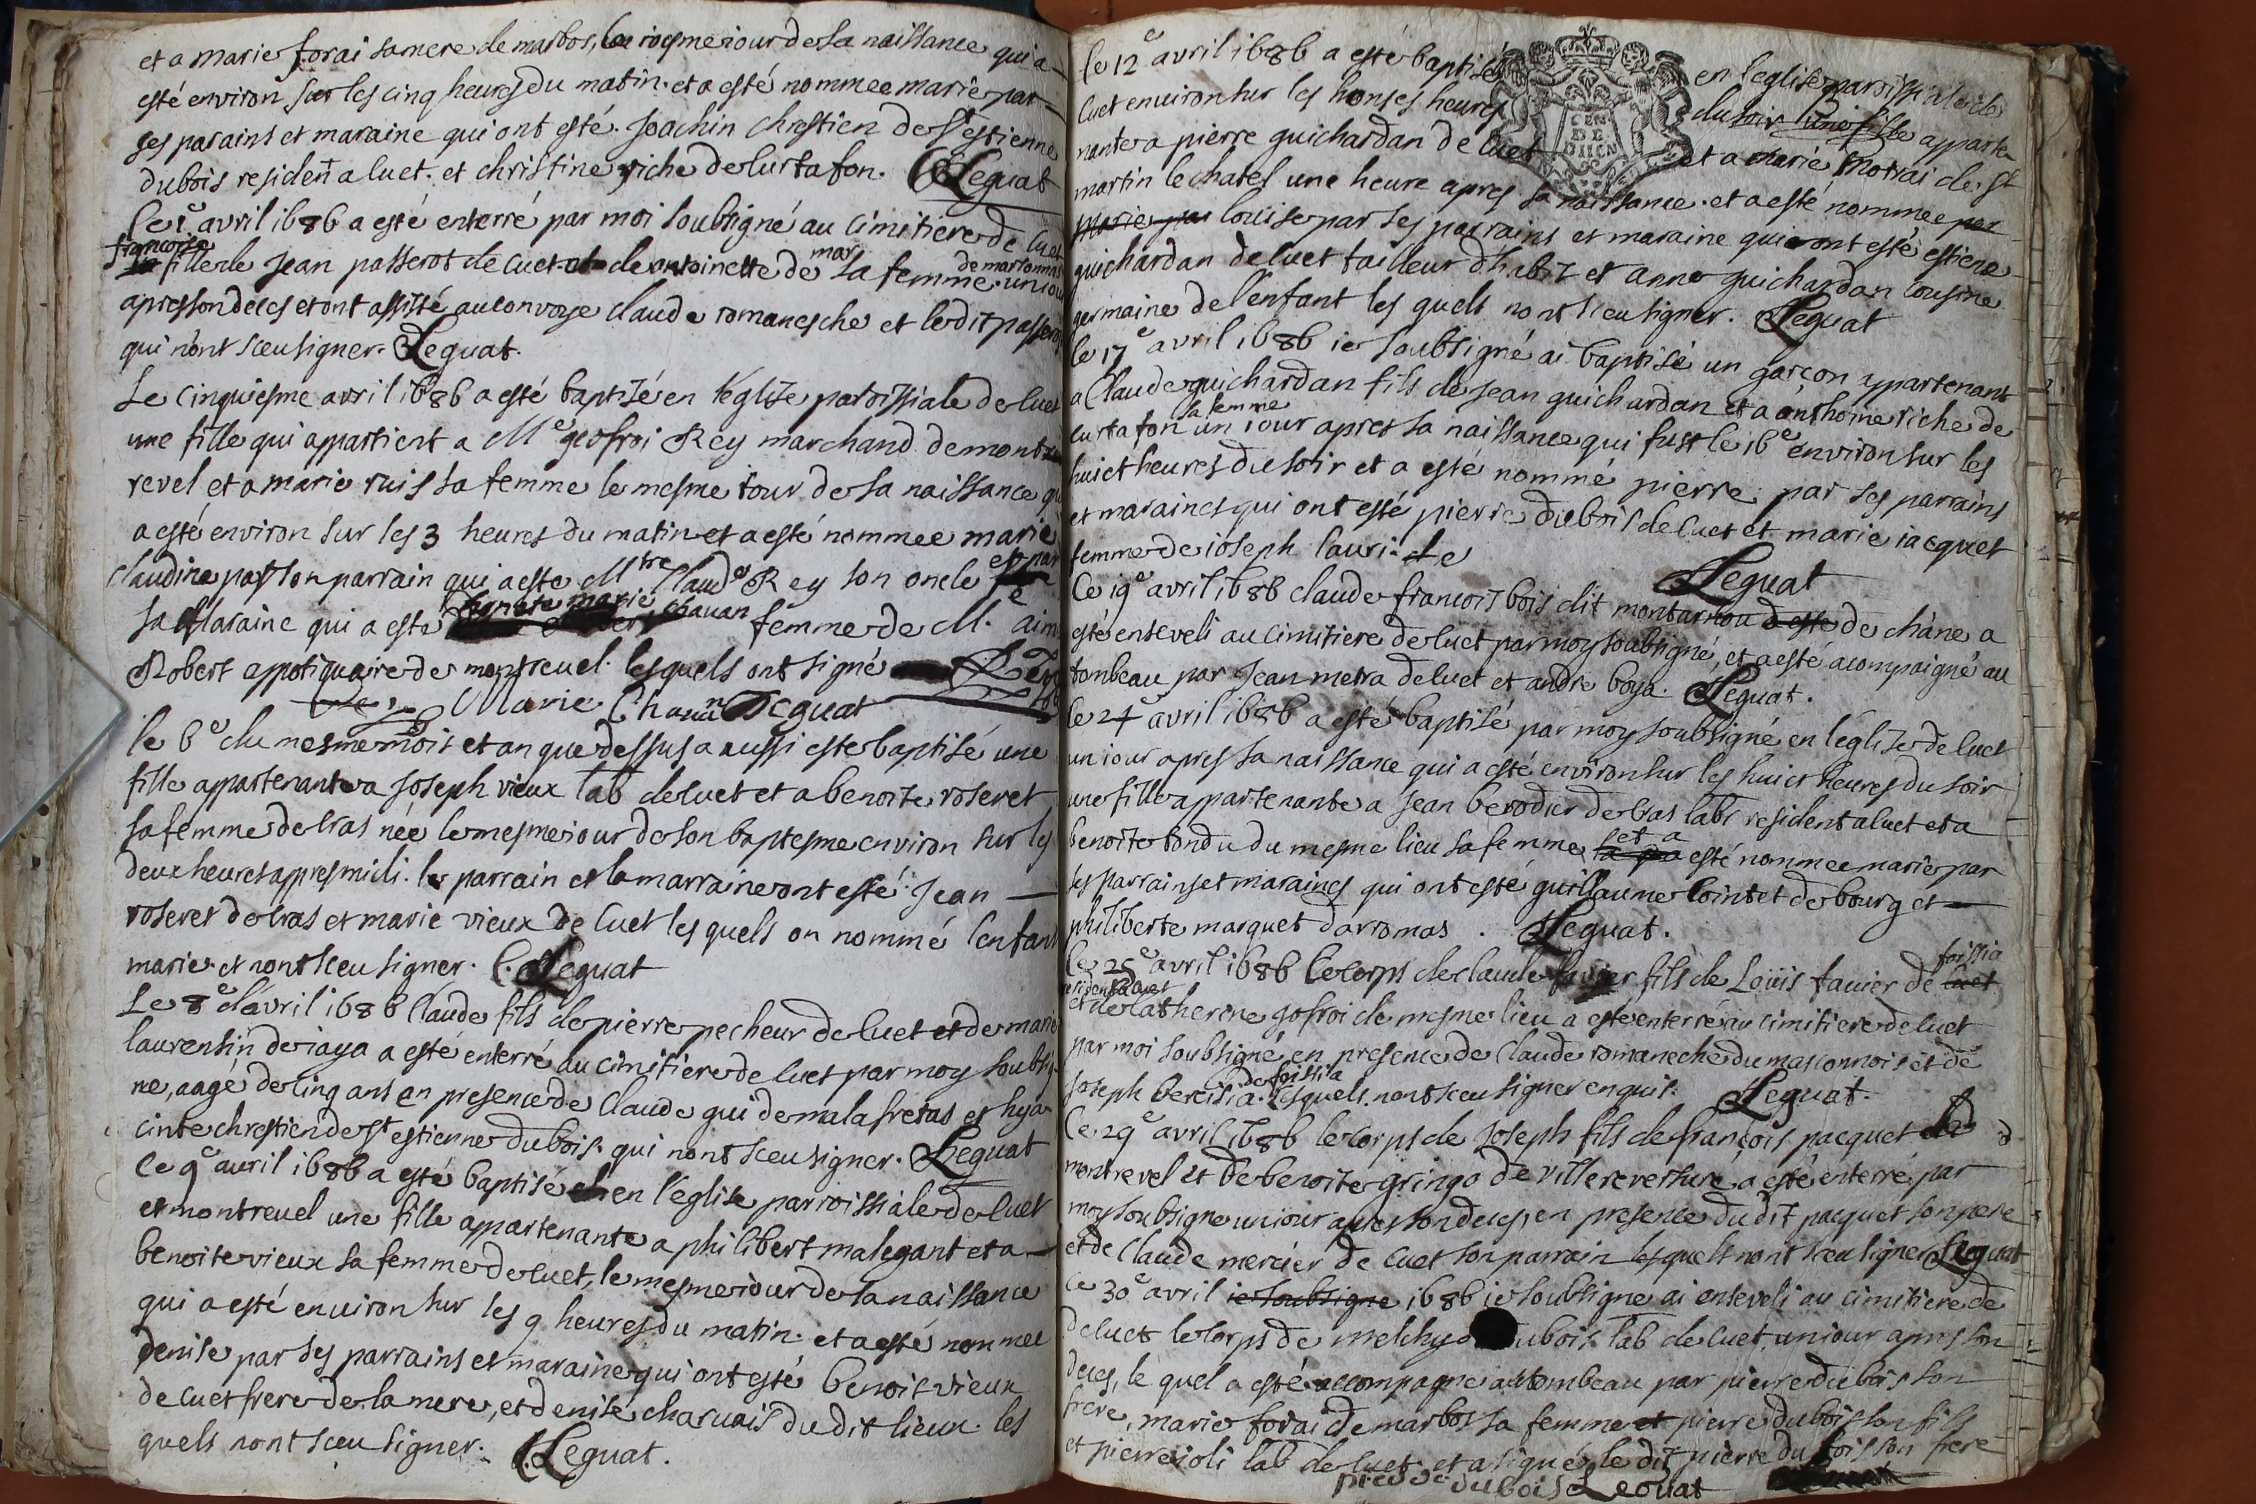 et a marie forai sa mere de marbos, le mesme iour de sa naissance qui a
esté environ sur les cinq heures du matin. et a esté nommee marie par
ses parains et maraine qui ont esté. Joachin chrestien de st estienne
dubois resident a cuet. et christine riche de curtafon. Leguat
Le 1e avril 1686 a esté enterré par moi soubsigné au cimitiere de cuet
françoise fille de Jean passerot de cuet de antoinette de mar sa femme de marsonnas un iour
apres son deces et ont assisté au convoye claude romanesche et ledit passerot
qui n'ont sceu signer. Leguat.
Le cinquiesme avril 1686 a esté baptisé en l'eglize paroissiale de cuet
une fille qui appartient a Me geofroi Rey marchand de mont
revel et a marie ruis sa femme le mesme iour de sa naissance qui
a esté environ sur les 3 heures du matin et a esté nommee marie
claudine par son parrain qui a este Mtre Claude Rey son oncle et par
sa Maraine qui a esté marie chavan femme de M. aimé
Robert appotiquaire de montreuel. lesquels ont signé Rey
Marie Chavan Leguat
le 6e du mesme mois et an que dessus a aussi este baptisé une
fille appartenante a Joseph vieux lab de cuet et a benoite roseret
sa femme de cras née le mesme iour de son baptesme environ sur les
deux heures apres midi. le parrain et la marraine ont esté Jean
roseret de cras et marie vieux de cuet les quels on nommé l'enfant
marie. et nont sceu signer. C. Leguat
Le 8e d'avril 1686 Claude fils de pierre pecheur de cuet et de marie
laurensin de iaya a esté enterré au cimitiere de cuet par moy soubsig
né, aagé de cinq ans en presence de Claude gui de malafretas et hya
cinte chrestien de st estienne dubois. qui nont sceu signer. Leguat
Le 9e avril 1686 a esté baptisé en l'église parroissiale de cuet
et montreuel une fille appartenante a philibert malegant et a
benoite vieux sa femme de cuet, le mesme iour de sa naissance
qui a esté environ sur les 9 heures du matin. et a esté nommee
denise par ses parrains et maraine qui ont esté benoit vieux
de cuet frere de la mere, et denise charvais du dit lieux. les
quels nont sceu signer. C. Leguat.
le 12e avril 1686 a esté baptisé en l'eglise paroissiale de
cuet environ sur les honses heures du soir une fille apparte
nante a pierre guichardan de cuet et a marie motrai de st
martin le chatel une heure apres sa naissance. et a esté nommee par
marie par louise par ses parrains et maraine qui ont esté estiene
guichardan de cuet tailleur d'habiz et anne guichardan cousine
germaine de l'enfant les quels nont sceu signer. Leguat
le 17e avril 1686 ie soubsigné ai baptisé un garçon appartenant
a Claude guichardan fils de Jean guichardan et a anthoine riche de
curtafon sa femme un iour apres sa naissance qui fust le 16e environ sur les
huict heures du soir et a esté nommé pierre par ses parrains
et maraines qui ont esté pierre dubois de cuet et marie iacquet
femme de ioseph lauri
Leguat
Ce 19e avril 1686 claude francois bois dit montarnou de chàne a
esté enseveli au cimitiere de cuet par moy soubsigné, et a esté acompaigné au
tombeau par Jean metra de cuet et andre boya. Leguat.
le 24e avril 1686 a esté baptisé par moy soubsigné en l'eglize de cuet
un iour apres sa naissance qui a esté environ sur les huict heures du soir
une fille appartenante a Jean berodier de bras labr resident a cuet et a
benoite tondu du mesme lieu sa femme et a esté nommee marie par
ses parrains et maraines qui ont esté guillaume Cointet de bourg et
philiberte marquet darromas. Leguat.
Ce 25e avril 1686 le corps de claude favier fils de Loüis favier de foissia
resident a cuet et de Catherine gofroi de mesme lieu a esté enterré au cimitiere de cuet
par moi soubsigné en presence de Claude romaneche du masconnois et de
Joseph Vercisia de foissia lesquels nont sceu signer enquis. Leguat.
Ce 29e avril 1686 le corps de Joseph fils de françois pacquet de
montrevel et de benoite gringo de villereversure a esté enterré par
moy soubsigné un iour apres son deces, en presence du dit pacquet son pere
et de Claude mercier de cuet son parrain lesquels nont sceu signer Leguat
Ce 30e avril ie soubsigne 1686 ie soubsigne ai enseveli au cimitiere de
de cuet le corps de melchyo ubois lab de cuet un iour apres son
deces, le quel a esté accompagne au tombeau par pierre dubois son
frere, marie forai de marbos sa femme et pierre dubois son fils
et pierre ioli lab de cuet et a signé le dit pierre du bois son frere
pierre dubois Leguat